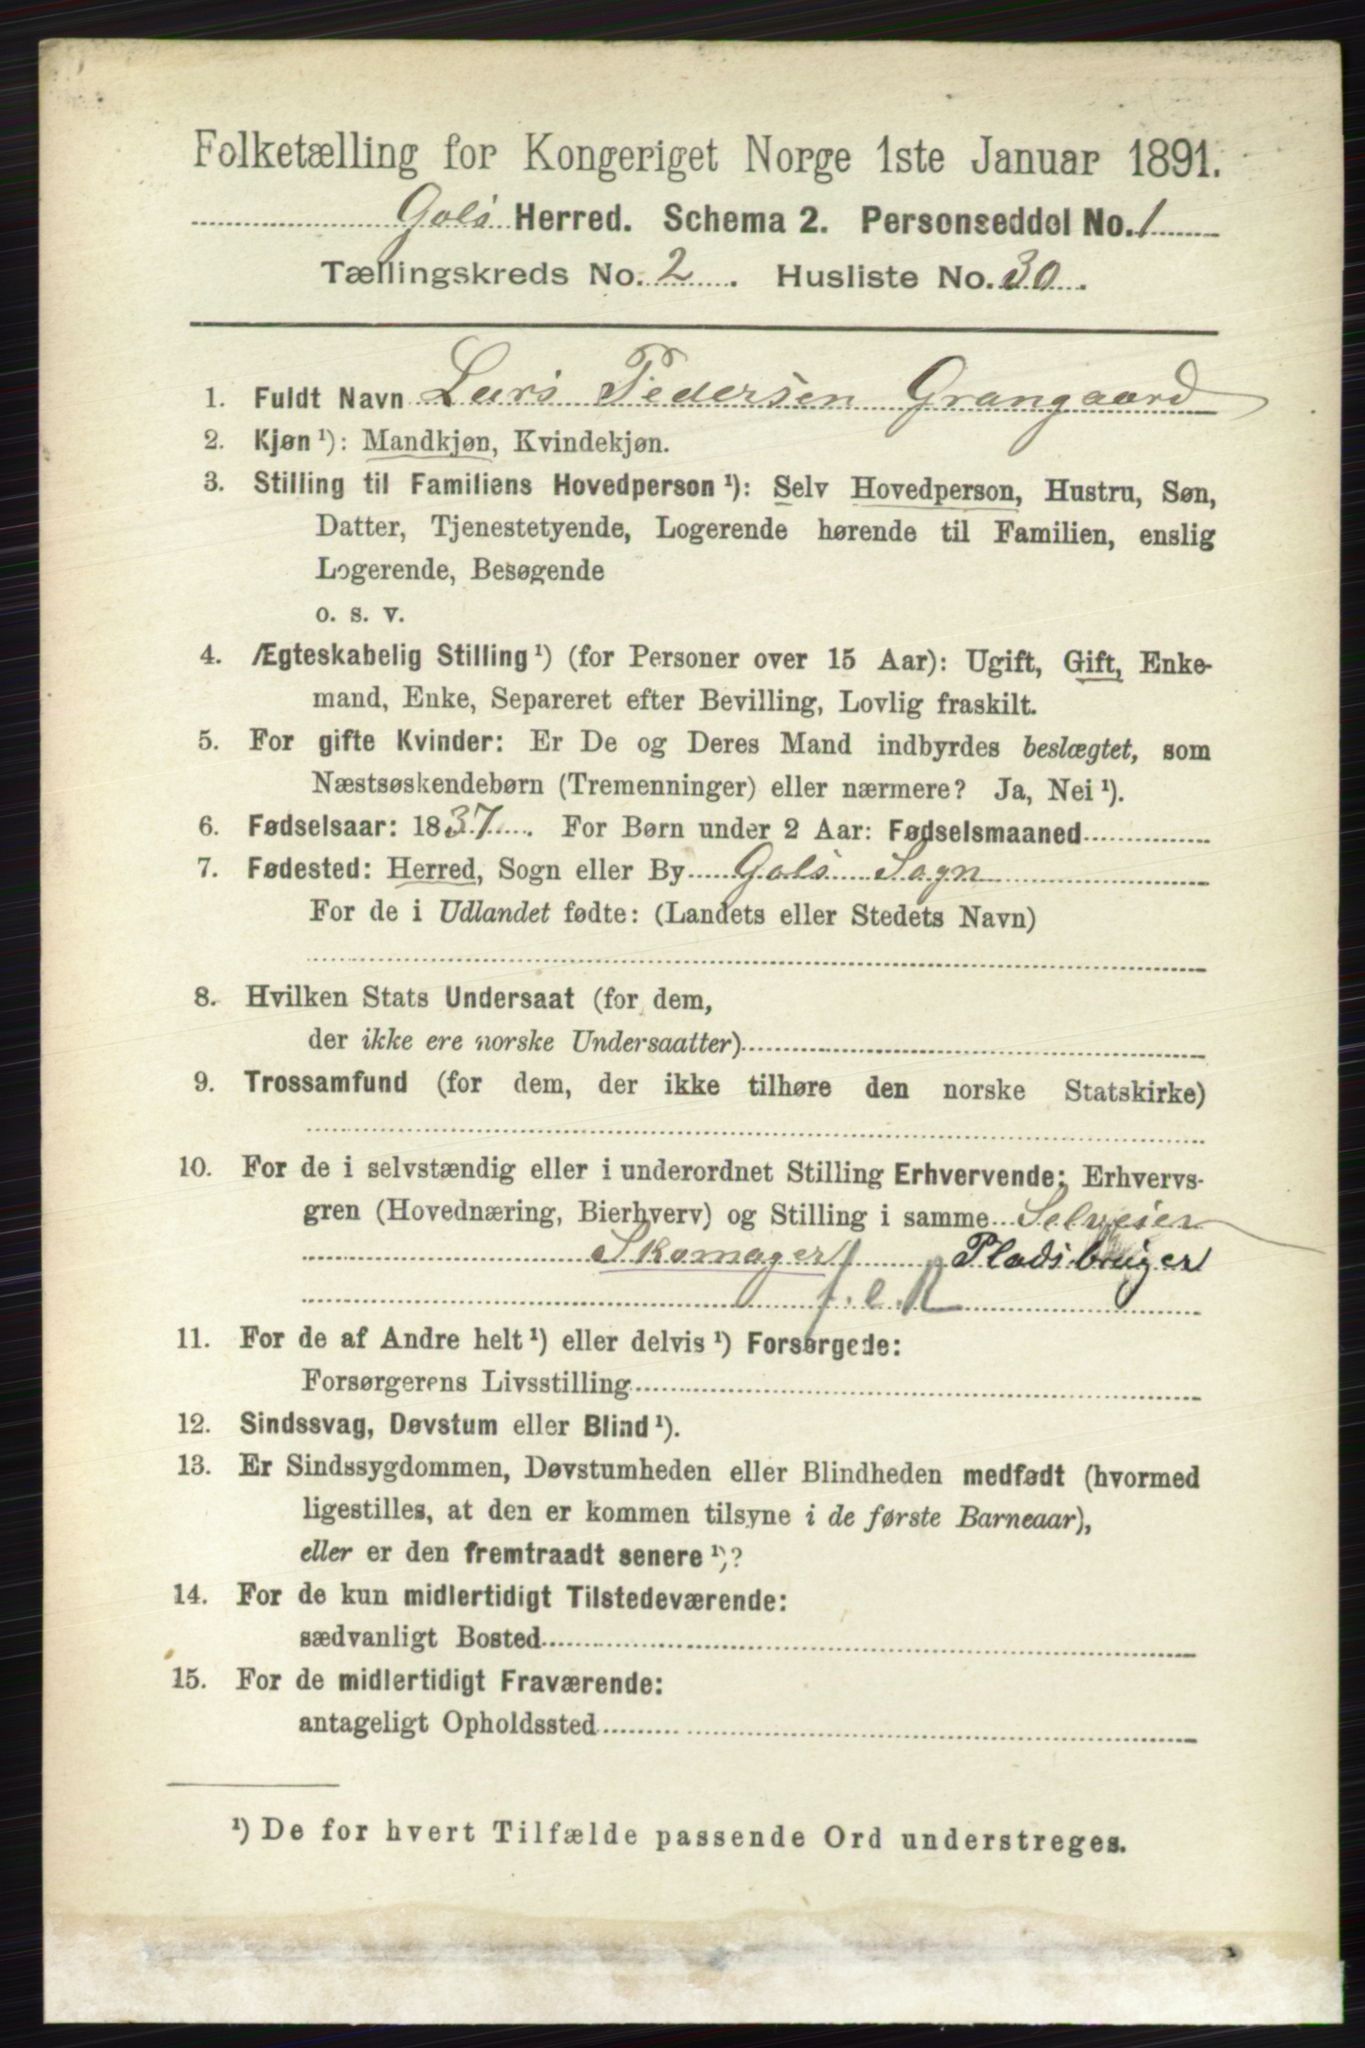 Folketælling for Kongeriget Norge 1ste Januar 1891.
Gols Herred. Schema 2. Personseddel No. 1
Tællingskreds No. 2. Husliste No. 30.
1. Fuldt Navn Lars Pedersen Grangaard
2. Kjøn ¹): Mandkjøn, Kvindekjøn.
3. Stilling til Familiens Hovedperson ¹): Selv Hovedperson, Hustru, Søn,
Datter, Tjenestetyende, Logerende hørende til Familien, enslig
Logerende, Besøgende
o. s. v.
4. Ægteskabelig Stilling ¹) (for Personer over 15 Aar): Ugift, Gift, Enke-
mand, Enke, Separeret efter Bevilling, Lovlig fraskilt.
5. For gifte Kvinder: Er De og Deres Mand indbyrdes beslægtet, som
Næstsøskendebørn (Tremenninger) eller nærmere? Ja, Nei ¹).
6. Fødselsaar: 1837. For Børn under 2 Aar: Fødselsmaaned
7. Fødested: Herred, Sogn eller By Gols Sogn
For de i Udlandet fødte: (Landets eller Stedets Navn)
8. Hvilken Stats Undersaat (for dem,
der ikke ere norske Undersaatter)
9. Trossamfund (for dem, der ikke tilhøre den norske Statskirke)
10. For de i selvstændig eller i underordnet Stilling Erhvervende: Erhvervs-
gren (Hovednæring, Bierhverv) og Stilling i samme Selveier
Skomager Pladsbruger
f. e. R
11. For de af Andre helt ¹) eller delvis ¹) Forsørgede:
Forsørgerens Livsstilling
12. Sindssvag, Døvstum eller Blind ¹).
13. Er Sindssygdommen, Døvstumheden eller Blindheden medfødt (hvormed
ligestilles, at den er kommen tilsyne i de første Barneaar),
eller er den fremtraadt senere ¹)?
14. For de kun midlertidigt Tilstedeværende:
sædvanligt Bosted
15. For de midlertidigt Fraværende:
antageligt Opholdssted
¹) De for hvert Tilfælde passende Ord understreges.